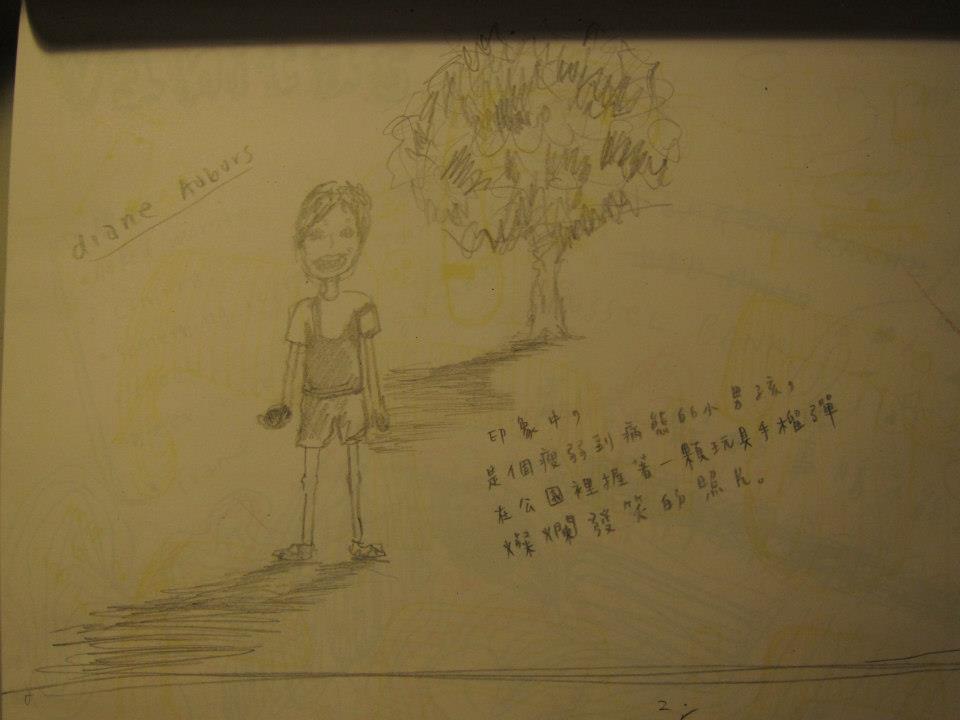 diane Auburs
印象中，
是個瘦弱到病態的小男孩，
在公園裡握著一顆玩具手榴彈
燦爛發笑的照片。
2.